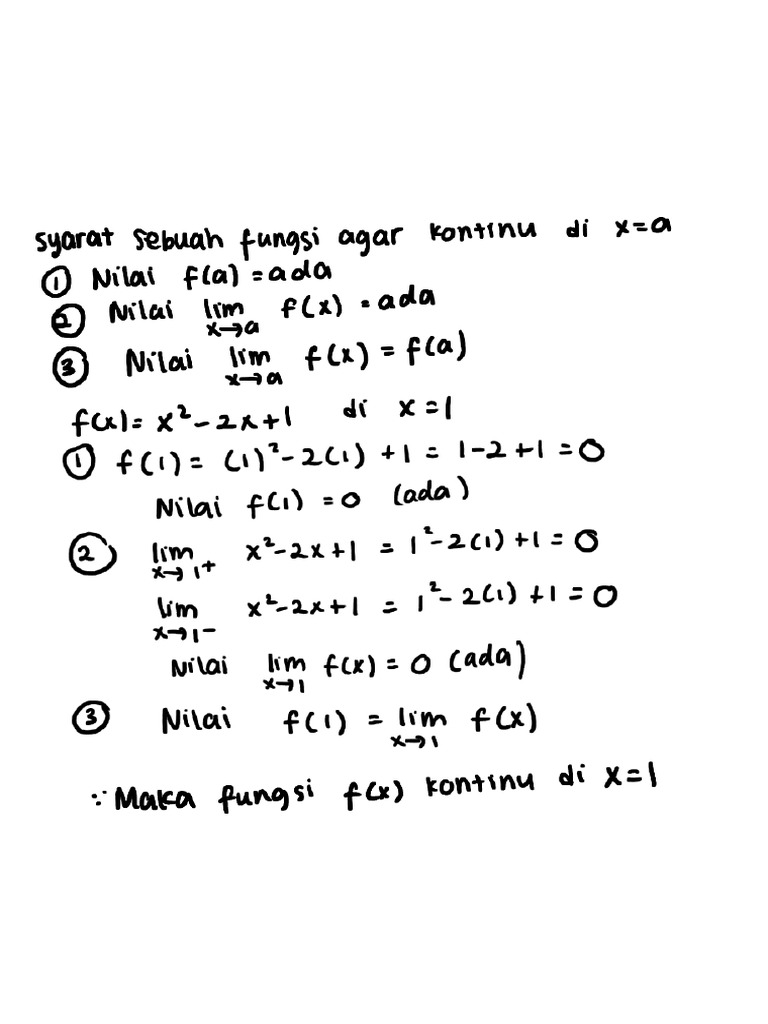 syarat sebuah fungsi agar kontinu di x=a
① Nilai f(a) = ada
② Nilai lim x→a f(x) = ada
③ Nilai lim x→a f(x) = f(a)
f(x) = x² - 2x + 1 di x = 1
① f(1) = (1)² - 2(1) + 1 = 1 - 2 + 1 = 0
Nilai f(1) = 0 (ada)
② lim x→1⁺ x² - 2x + 1 = 1² - 2(1) + 1 = 0
lim x→1⁻ x² - 2x + 1 = 1² - 2(1) + 1 = 0
Nilai lim x→1 f(x) = 0 (ada)
③ Nilai f(1) = lim x→1 f(x)
∵ Maka fungsi f(x) kontinu di x = 1